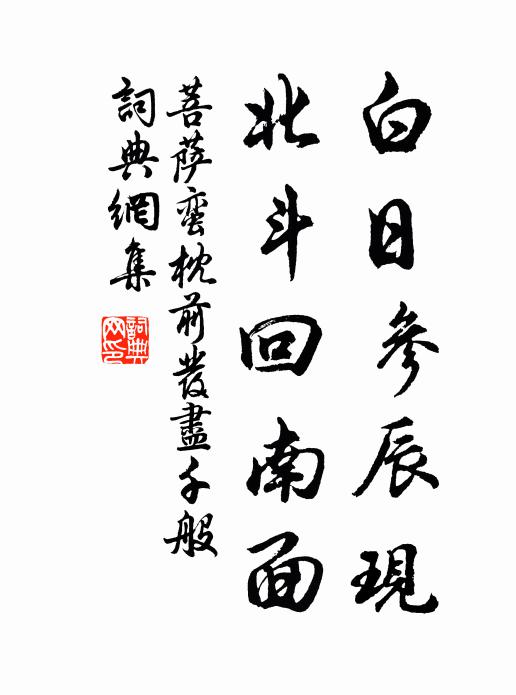 白日參辰現
北斗回南面
菩薩蠻枕前發盡千般
詞典網集
詞典
网印